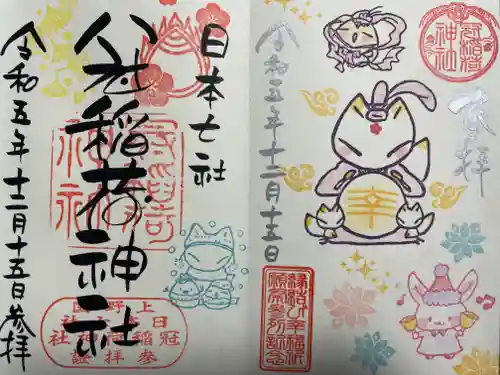 日本七社
冠稲荷神社
令和五年十二月十五日参拝
上野国
日本七社
冠稲荷神社
参拝証
冠稲荷
神社
奉拝
幸
令和五年十二月十五日
縁結び幸福祈